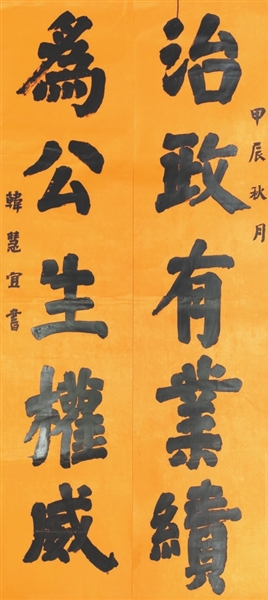 甲辰秋月
治政有業績
為公生權威
韓慧宜書